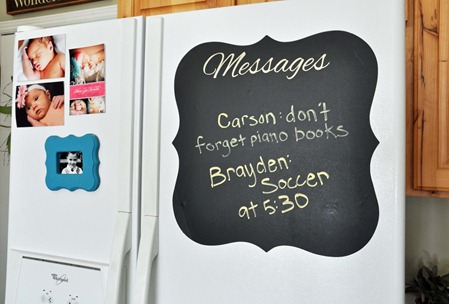 Messages
Carson: don't
forget piano books
Brayden:
Soccer
at 5:30
Whirlpool